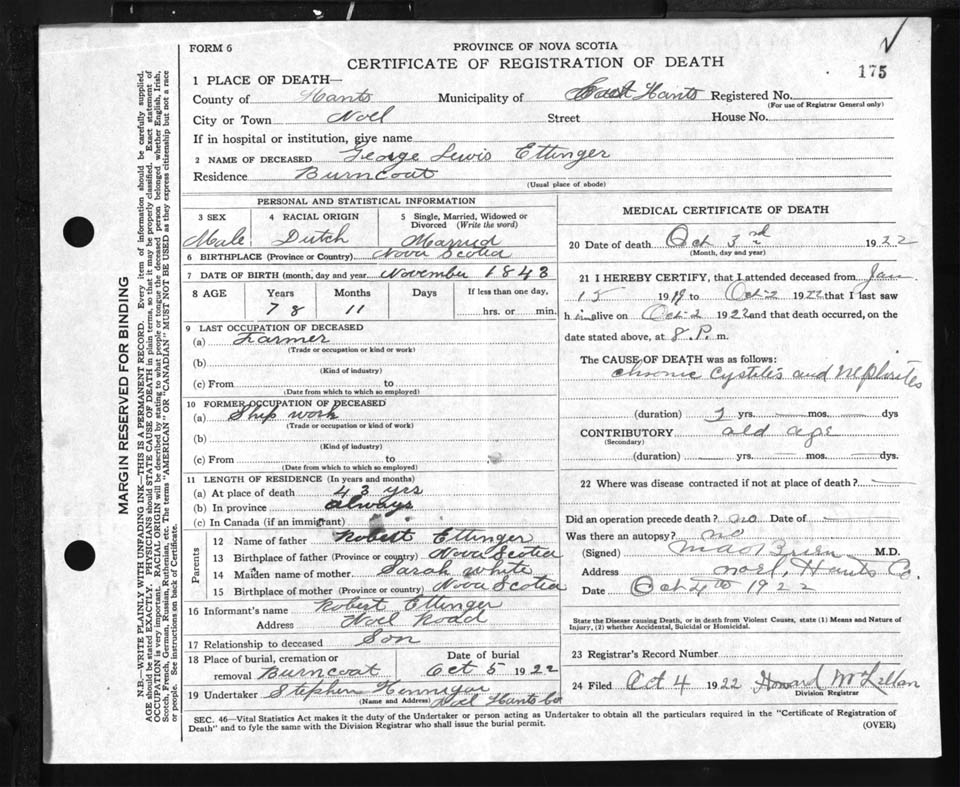 FORM 6
PROVINCE OF NOVA SCOTIA
CERTIFICATE OF REGISTRATION OF DEATH
175
1 PLACE OF DEATH—
County of Hants Municipality of East Hants Registered No.
(For use of Registrar General only)
City or Town Noel Street House No.
If in hospital or institution, give name
2 NAME OF DECEASED George Lewis Ettinger
Residence Burncoat
(Usual place of abode)
PERSONAL AND STATISTICAL INFORMATION
3 SEX 4 RACIAL ORIGIN 5 Single, Married, Widowed or
Divorced (Write the word)
Male Dutch Married
6 BIRTHPLACE (Province or Country) Nova Scotia
7 DATE OF BIRTH (month, day and year) November 1843
8 AGE Years Months Days If less than one day,
78 11 hrs. or min.
9 LAST OCCUPATION OF DECEASED
(a) Farmer
(Trade or occupation or kind or work)
(b)
(Kind of industry)
(c) From to
(Date from which to which so employed)
10 FORMER OCCUPATION OF DECEASED
(a) Ship work
(Trade or occupation or kind of work)
(b)
(Kind of industry)
(c) From to
(Date from which to which so employed)
11 LENGTH OF RESIDENCE (In years and months)
(a) At place of death 43 yrs
(b) In province always
(c) In Canada (if an immigrant)
Parents
12 Name of father Robert Ettinger
13 Birthplace of father (Province or country) Nova Scotia
14 Maiden name of mother Sarah White
15 Birthplace of mother (Province or country) Nova Scotia
16 Informant's name Robert Ettinger
Address Noel Road
17 Relationship to deceased Son
18 Place of burial, cremation or Date of burial
removal Burncoat Oct 5 1922
19 Undertaker Stephen Hennigar
(Name and Address) Noel Hants Co
MEDICAL CERTIFICATE OF DEATH
20 Date of death Oct 3rd 1922
(Month, day and year)
21 I HEREBY CERTIFY, that I attended deceased from Jan
15 1919 to Oct 2 1922 that I last saw
him alive on Oct 2 1922 and that death occurred, on the
date stated above, at 8 P. m.
The CAUSE OF DEATH was as follows:
Chronic Cystitis and Nephrites
(duration) yrs. mos. dys
CONTRIBUTORY old age
(Secondary)
(duration) yrs. mos. dys.
22 Where was disease contracted if not at place of death?
Did an operation precede death? no Date of
Was there an autopsy? no
(Signed) M.D.
Address Noel, Hants Co.
Date Oct 4th 1922
State the Disease causing Death, or in death from Violent Causes, state (1) Means and Nature of
Injury, (2) whether Accidental, Suicidal or Homicidal.
23 Registrar's Record Number
24 Filed Oct 4 1922 Howard McLellan
Division Registrar
SEC. 46—Vital Statistics Act makes it the duty of the Undertaker or person acting as Undertaker to obtain all the particulars required in the "Certificate of Registration of
Death" and to fyle the same with the Division Registrar who shall issue the burial permit.
(OVER)
MARGIN RESERVED FOR BINDING
N.B.—WRITE PLAINLY WITH UNFADING INK—THIS IS A PERMANENT RECORD. Every item of information should be carefully supplied.
AGE should be stated EXACTLY. PHYSICIANS should STATE CAUSE OF DEATH in plain terms, so that it may be properly classified. Exact statement of
OCCUPATION is very important. RACIAL ORIGIN will be described by stating to what people or tongue the deceased person belonged whether English, Irish,
Scotch, French, German, Russian, Ruthenian, etc. The terms "AMERICAN" OR "CANADIAN" MUST NOT BE USED as they express citizenship but not a race
or people. See instructions on back of Certificate.